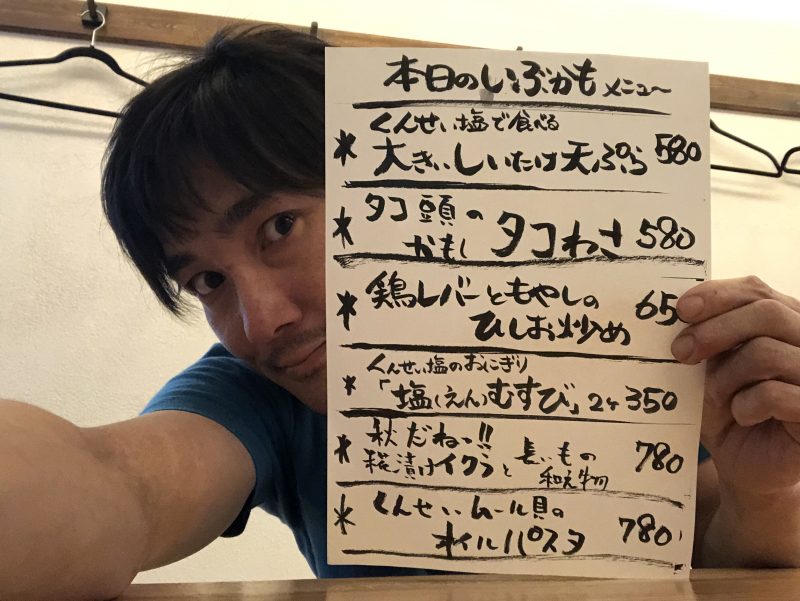 本日のいぶかもメニュー
* くんせい塩で食べる
大きいしいたけ天ぷら 580
* タコ頭の
かもし タコわさ 580
* 鶏レバーともやしの
ひしお炒め 650
* くんせい塩のおにぎり
「塩(えん)むすび」2ヶ 350
* 秋だねっ!!
糀漬けイクラと 長いもの 和え物 780
* くんせいムール貝の
オイルパスタ 780